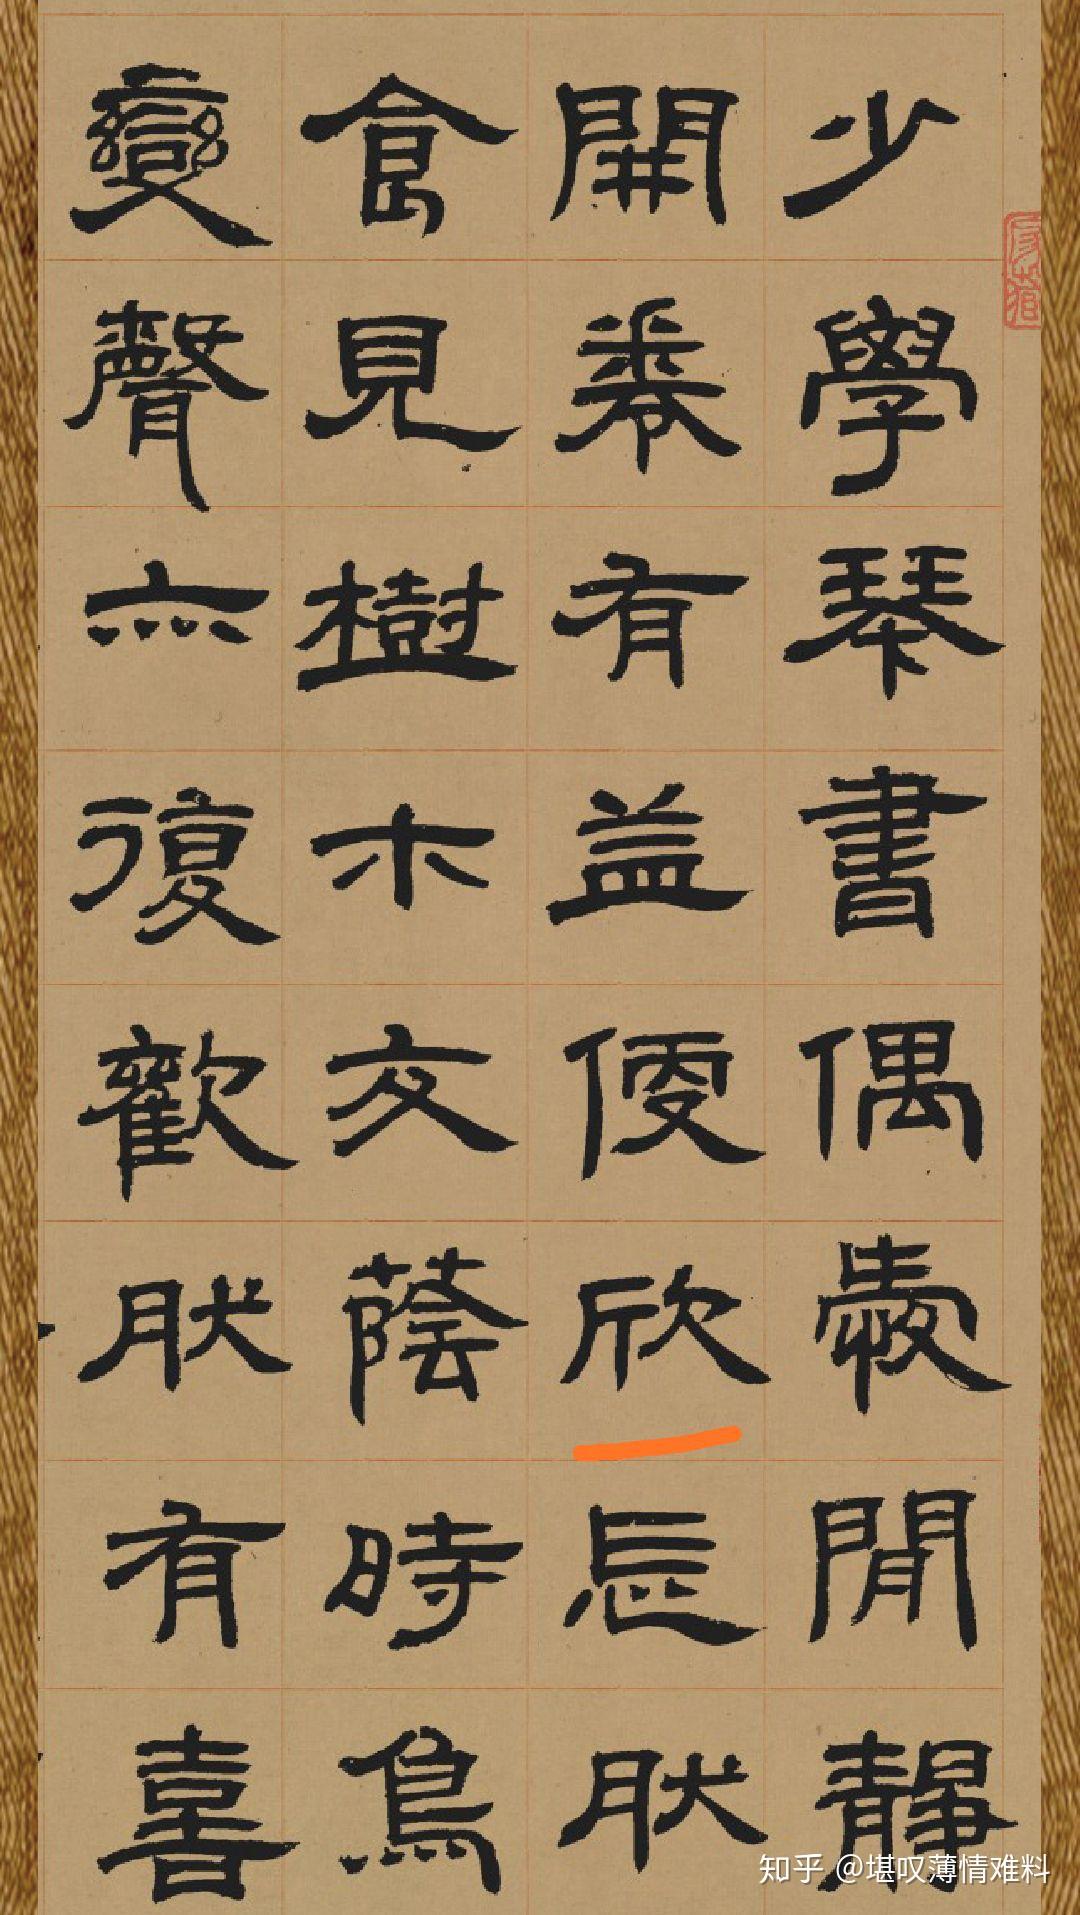 少學琴書偶愛閒靜
開卷有益便欣忘然
食見樹木交蔭時鳥
變聲亦復歡然有喜
知乎 @堪叹薄情难料